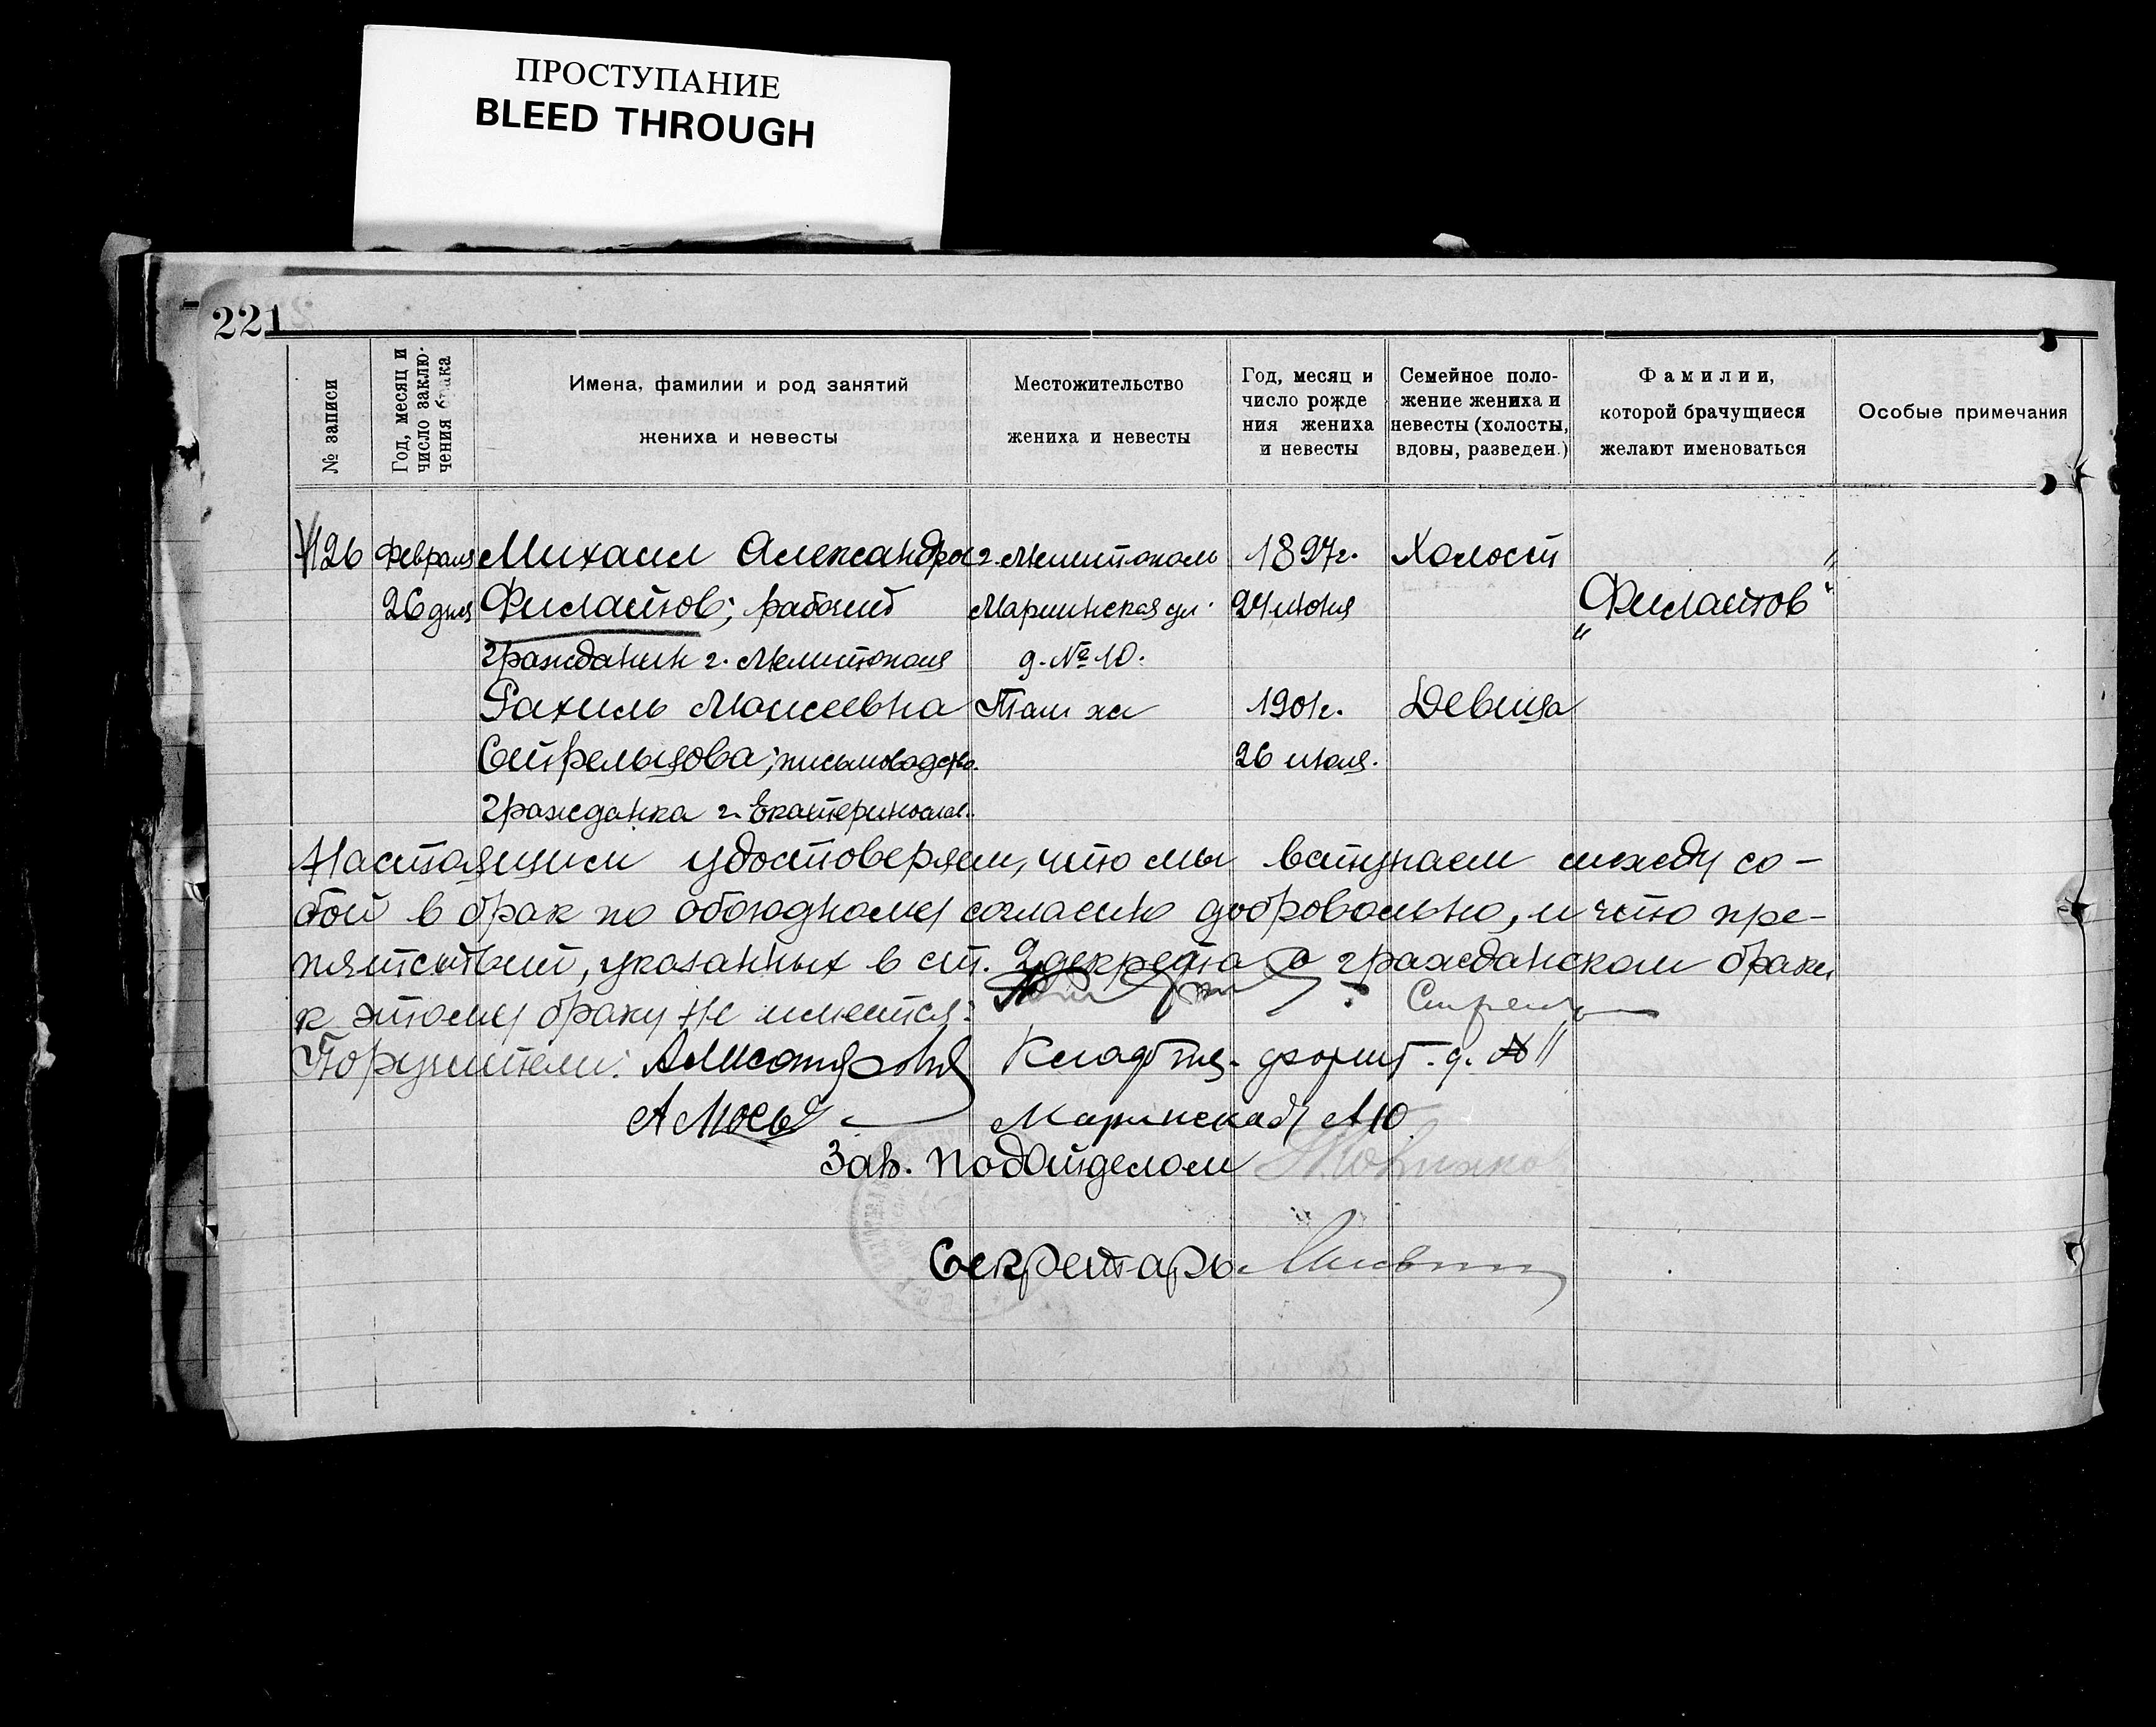 ПРОСТУПАНИЕ
BLEED THROUGH
221
№ записи
Год, месяц и
число заклю-
чения брака
Имена, фамилии и род занятий
жениха и невесты
Местожительство
жениха и невесты
Год, месяц и
число рожде
ния жениха
и невесты
Семейное поло-
жение жениха и
невесты (холосты,
вдовы, разведен.)
Фамилии,
которой брачущиеся
желают именоваться
Особые примечания
126 Февраля Михаил Александров г. Мелитополь 1897г. Холост
26 дня Филатов; рабочий Мариинская ул. 24 июня "Филатов"
гражданин г. Мелитополя д. № 10.
Рахиль Моисеевна Там же 1901г. Девица
Стрельцова; письмоводство. 26 июля.
гражданка г. Екатеринослав.
Настоящим удостоверяем, что мы вступаем между со-
бой в брак по обоюдному согласию добровольно, и что пре-
пятствий, указанных в ст. 2 декрета о гражданском браке,
к этому браку не имеется:
Поручители: д. № 11
Маринская № 10
Зав. подотделом
Секретарь